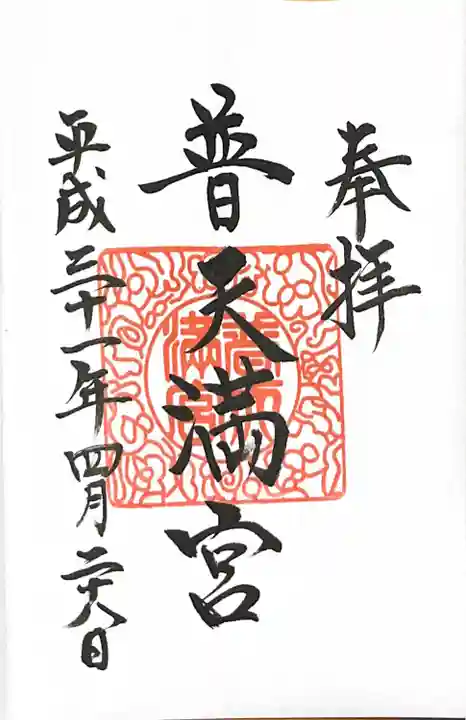 奉拝
普天満宮
平成三十一年四月二十八日